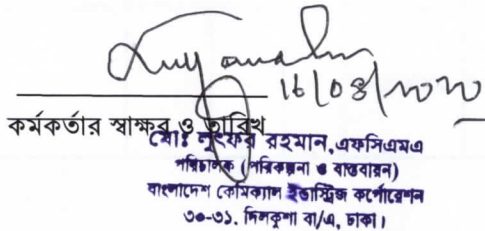 ১৬/০৪/২০২০
কর্মকর্তার স্বাক্ষর ও তারিখ
মোঃ লুৎফর রহমান, এফসিএমএ
পরিচালক (পরিকল্পনা ও বাস্তবায়ন)
বাংলাদেশ কেমিক্যাল ইন্ডাস্ট্রিজ কর্পোরেশন
৩০-৩১, দিলকুশা বা/এ, ঢাকা।